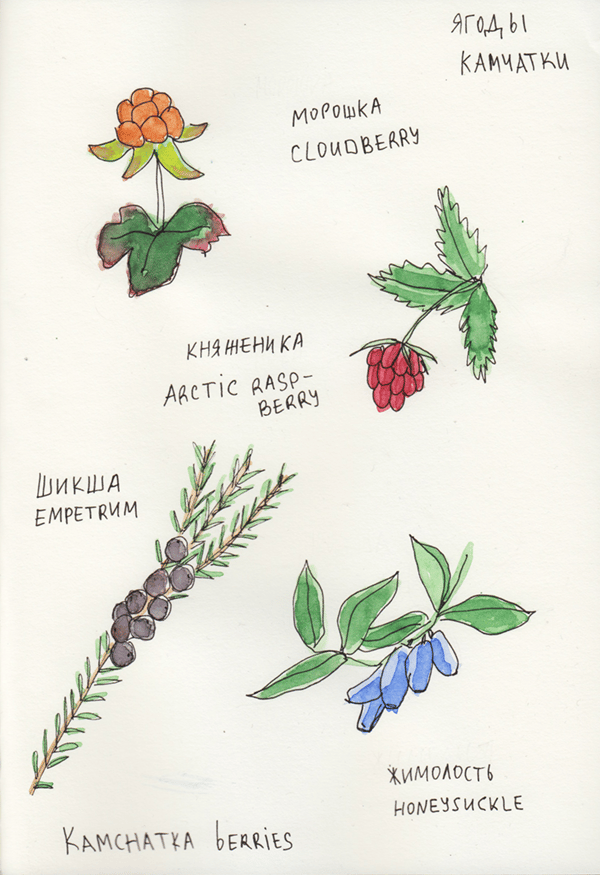 ЯГОДЫ
КАМЧАТКИ
МОРОШКА
CLOUDBERRY
КНЯЖЕНИКА
ARCTIC RASP-
BERRY
ШИКША
EMPETRUM
ЖИМОЛОСТЬ
HONEYSUCKLE
KAMCHATKA bERRIES